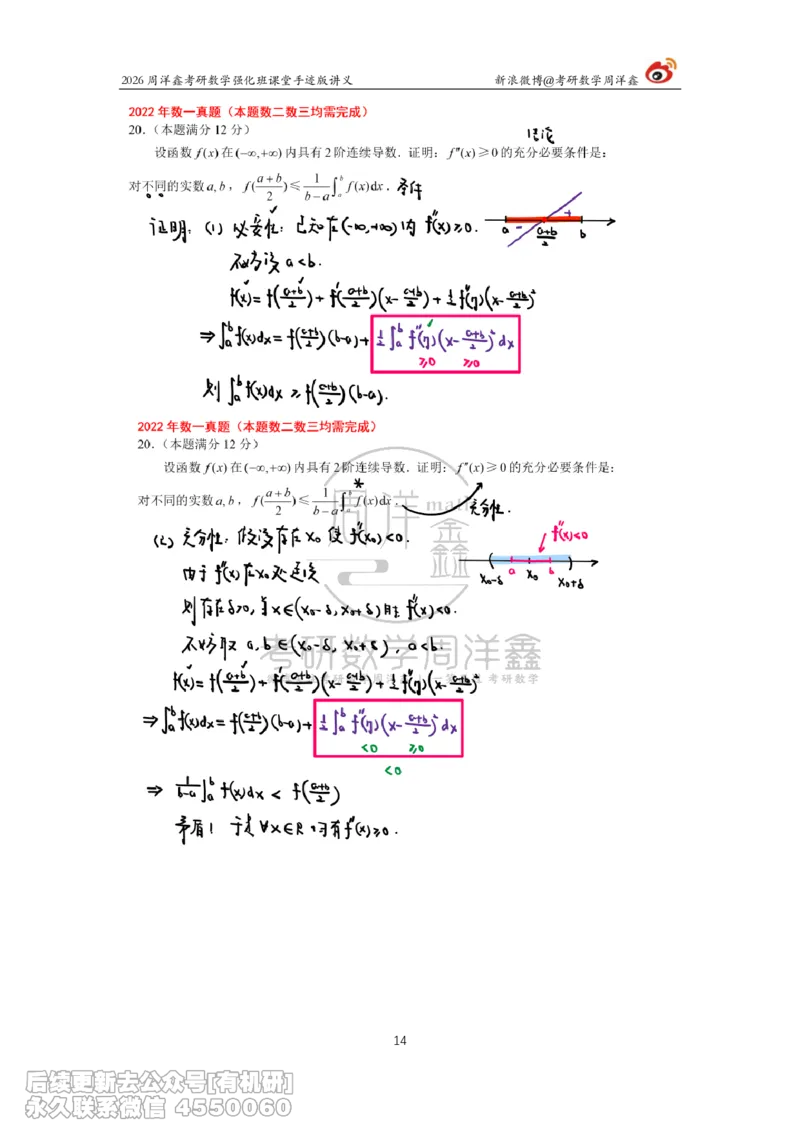 2026 周洋鑫考研数学强化班课堂手迹版讲义 新浪微博@考研数学周洋鑫
2022 年数一真题（本题数二数三均需完成）
20.（本题满分 12 分） 结论
设函数 f(x) 在 (−∞,+∞) 内具有 2 阶连续导数. 证明: f″(x) ≥ 0 的充分必要条件是:
对不同的实数 a, b, f((a+b)/2) ≤ 1/(b−a) ∫_a^b f(x)dx. 条件
证明: (1) 必要性: 已知在(-∞,+∞)内 f″(x)≥0.
a - (a+b)/2 + b
不妨设 a<b.
f(x)=f((a+b)/2)+f′((a+b)/2)(x-(a+b)/2)+1/2 f″(η)(x-(a+b)/2)²
⇒∫_a^b f(x)dx=f((a+b)/2)(b-a)+1/2∫_a^b f″(η)(x-(a+b)/2)²dx
≥0 ≥0
则∫_a^b f(x)dx ≥ f((a+b)/2)(b-a).
2022 年数一真题（本题数二数三均需完成）
20.（本题满分 12 分）
设函数 f(x) 在 (−∞,+∞) 内具有 2阶连续导数. 证明: f″(x) ≥ 0 的充分必要条件是:
对不同的实数 a, b, f((a+b)/2) ≤ 1/(b−a) ∫_a^b f(x)dx. * 充分性.
(2) 充分性: 假设存在 x₀ 使 f″(x₀)<0.
f″(x)<0
x₀-δ a x₀ b x₀+δ
由于 f″(x)在x₀处连续
则存在δ>0, 当x∈(x₀-δ, x₀+δ)时 f″(x)<0.
不妨取 a,b∈(x₀-δ, x₀+δ), a<b.
f(x)=f((a+b)/2)+f′((a+b)/2)(x-(a+b)/2)+1/2 f″(η)(x-(a+b)/2)²
⇒∫_a^b f(x)dx=f((a+b)/2)(b-a)+1/2∫_a^b f″(η)(x-(a+b)/2)²dx
<0 ≥0
<0
⇒ 1/(b-a)∫_a^b f(x)dx < f((a+b)/2)
矛盾! 于是∀x∈R,均有f″(x)≥0.
周洋鑫
考研数学周洋鑫
14
后续更新去公众号[有机研]
永久联系微信 4550060